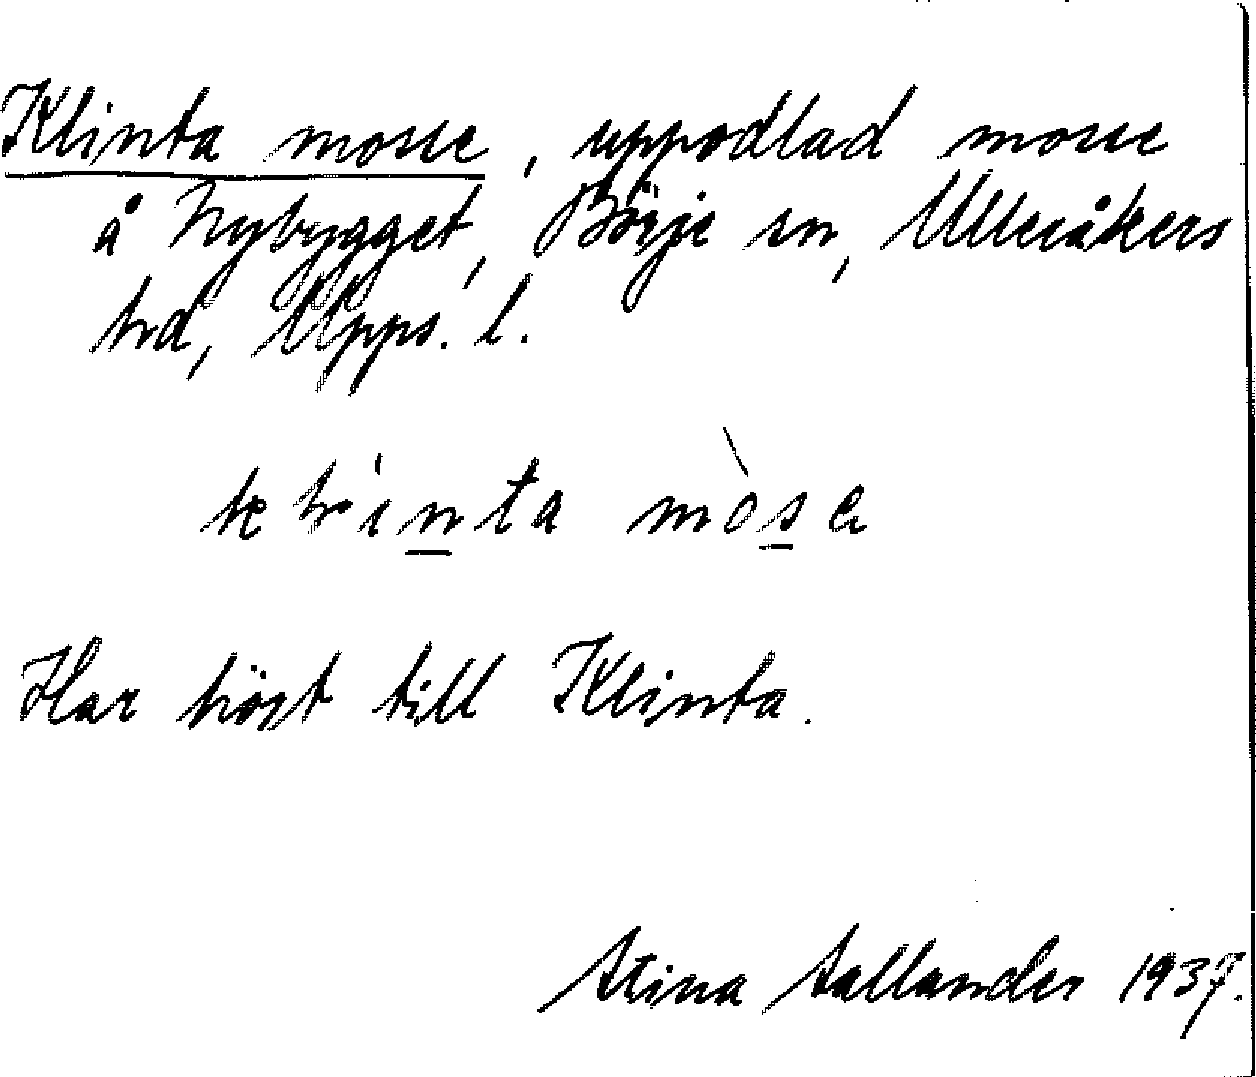 Klinta mosse, uppodlad mosse
å Nybygget, Börje sn, Ulleråkers
hd, Upps. l.
Har hört till Klinta.
Stina Sallander 1937.